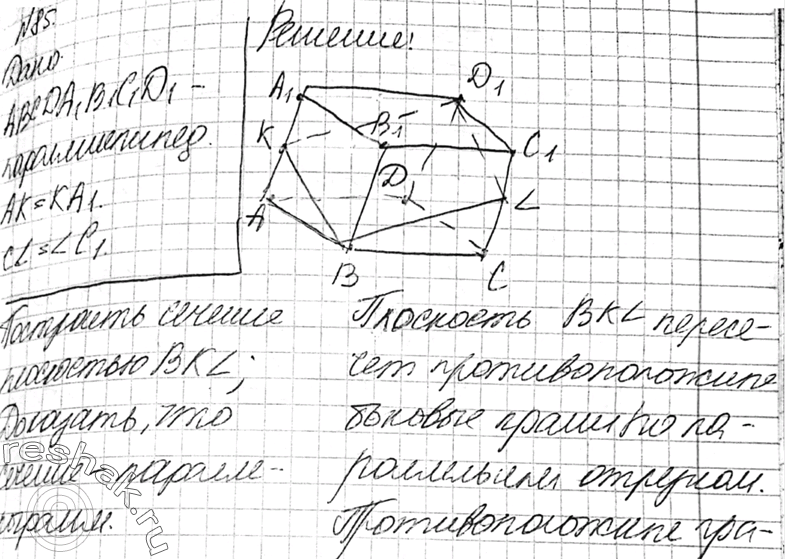 №85.
Дано
ABCDA₁B₁C₁D₁ –
параллелепипед.
AK=KA₁.
CL=LC₁.
Построить сечение
плоскостью BKL;
Доказать, что
сечение – паралле-
лограмм.
Решение:
A₁
D₁
K
B₁
C₁
D
L
A
B
C
Плоскость BKL пересе-
чет противоположные
боковые грани по па-
раллельным отрезкам.
Противоположные гра-
reshak.ru